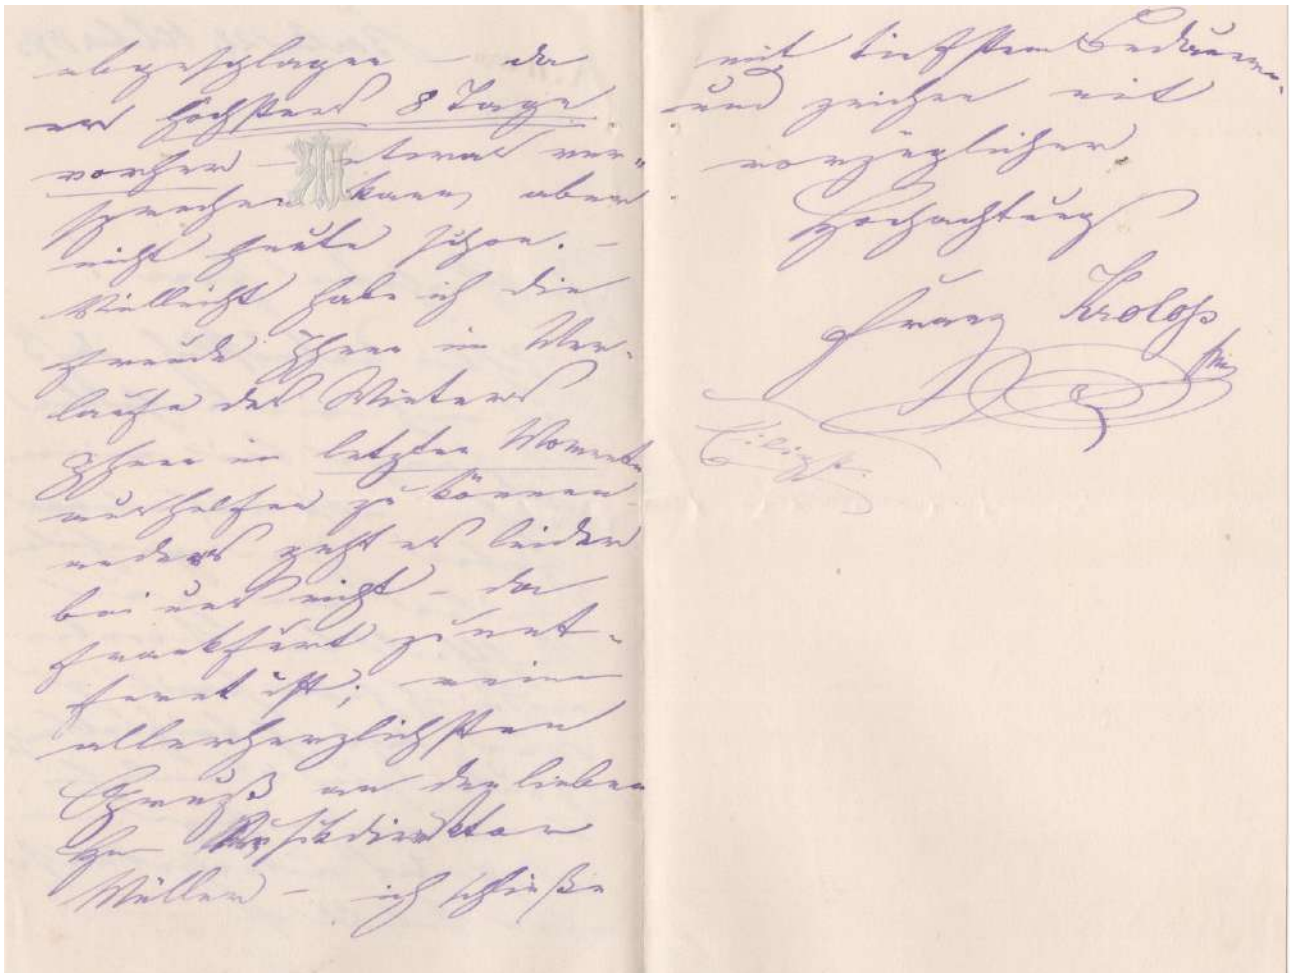 abgeschlagen – da
er höchstens 8 Tage
vorher – etwas ver-
sprechen kann, aber
nicht heute schon. –
Vielleicht habe ich die
Freude Ihnen im Ver-
laufe des Winters
Ihnen im letzten Momente
aushelfen zu können
anders geht es leider
bei uns nicht – da
Frankfurt zu ent-
fernt ist; meinen
allerherzlichsten
Gruß an den lieben
H Musikdirektor
Müller – ich schließe
mit tiefstem Bedauern
und zeichne mit
vorzüglicher
Hochachtung
Franz Krolop